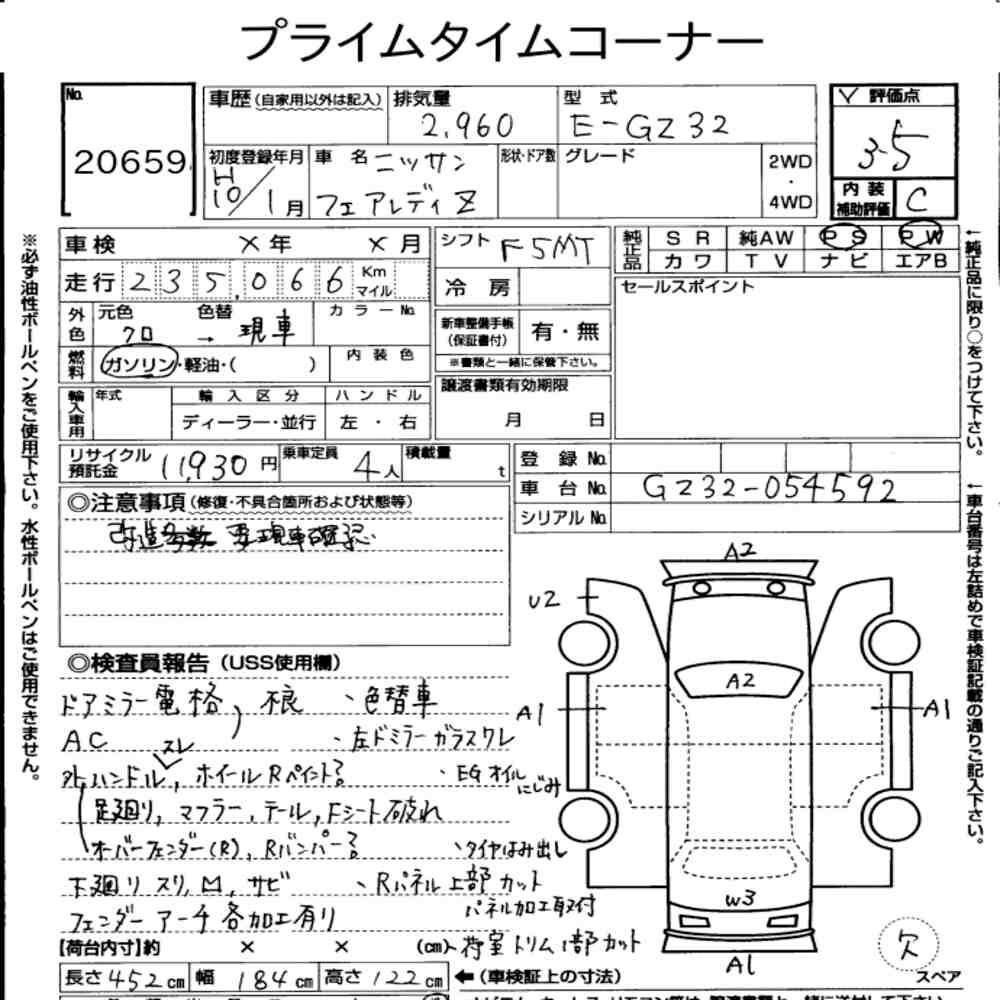 プライムタイムコーナー
No. 20659
車歴(自家用以外は記入)
排気量 2,960
型式 E-GZ32
評価点 3.5
内装補助評価 C
初度登録年月 H10/1月
車名 ニッサン フェアレディZ
形状・ドア数
グレード
2WD・4WD
車検 ×年 ×月
シフト F5MT
純正品 SR 純AW PS PW
カワ TV ナビ エアB
走行 235,066 Km マイル
冷房
セールスポイント
外色 元色 クロ 色替 → 現車 カラーNo.
新車整備手帳(保証書付) 有・無
※書類と一緒に保管下さい。
燃料 ガソリン・軽油・( ) 内装色
譲渡書類有効期限 月 日
輸入車用 年式 輸入区分 ハンドル
ディーラー・並行 左・右
リサイクル預託金 11,930円 乗車定員 4人 積載量 t
登録No.
車台No. GZ32-054592
シリアルNo.
◎注意事項(修復・不具合箇所および状態等)
改造多数 要現車確認
◎検査員報告(USS使用欄)
ドアミラー電格、不良 、色替車
AC
・左ドミラーガラスワレ
スレ
外、ハンドル、ホイールRペイント?
・EGオイルにじみ
足廻り、マフラー、テール、Fシート破れ
オーバーフェンダー(R)、Rバンパー?
、タイヤはみ出し
下廻りスリ、M、サビ
、Rパネル上部カット
パネル加工取付
フェンダーアーチ各加工有り
、荷室トリム1部カット
【荷台内寸】約 × × (cm)
長さ452cm 幅184cm 高さ122cm
←(車検証上の寸法)
A2
U2
A2
A1
A1
W3
A1
欠
スペア
※必ず油性ボールペンをご使用下さい。水性ボールペンはご使用できません。
←純正品に限り○をつけて下さい。
←車台番号は左詰めで車検証記載の通りご記入下さい。